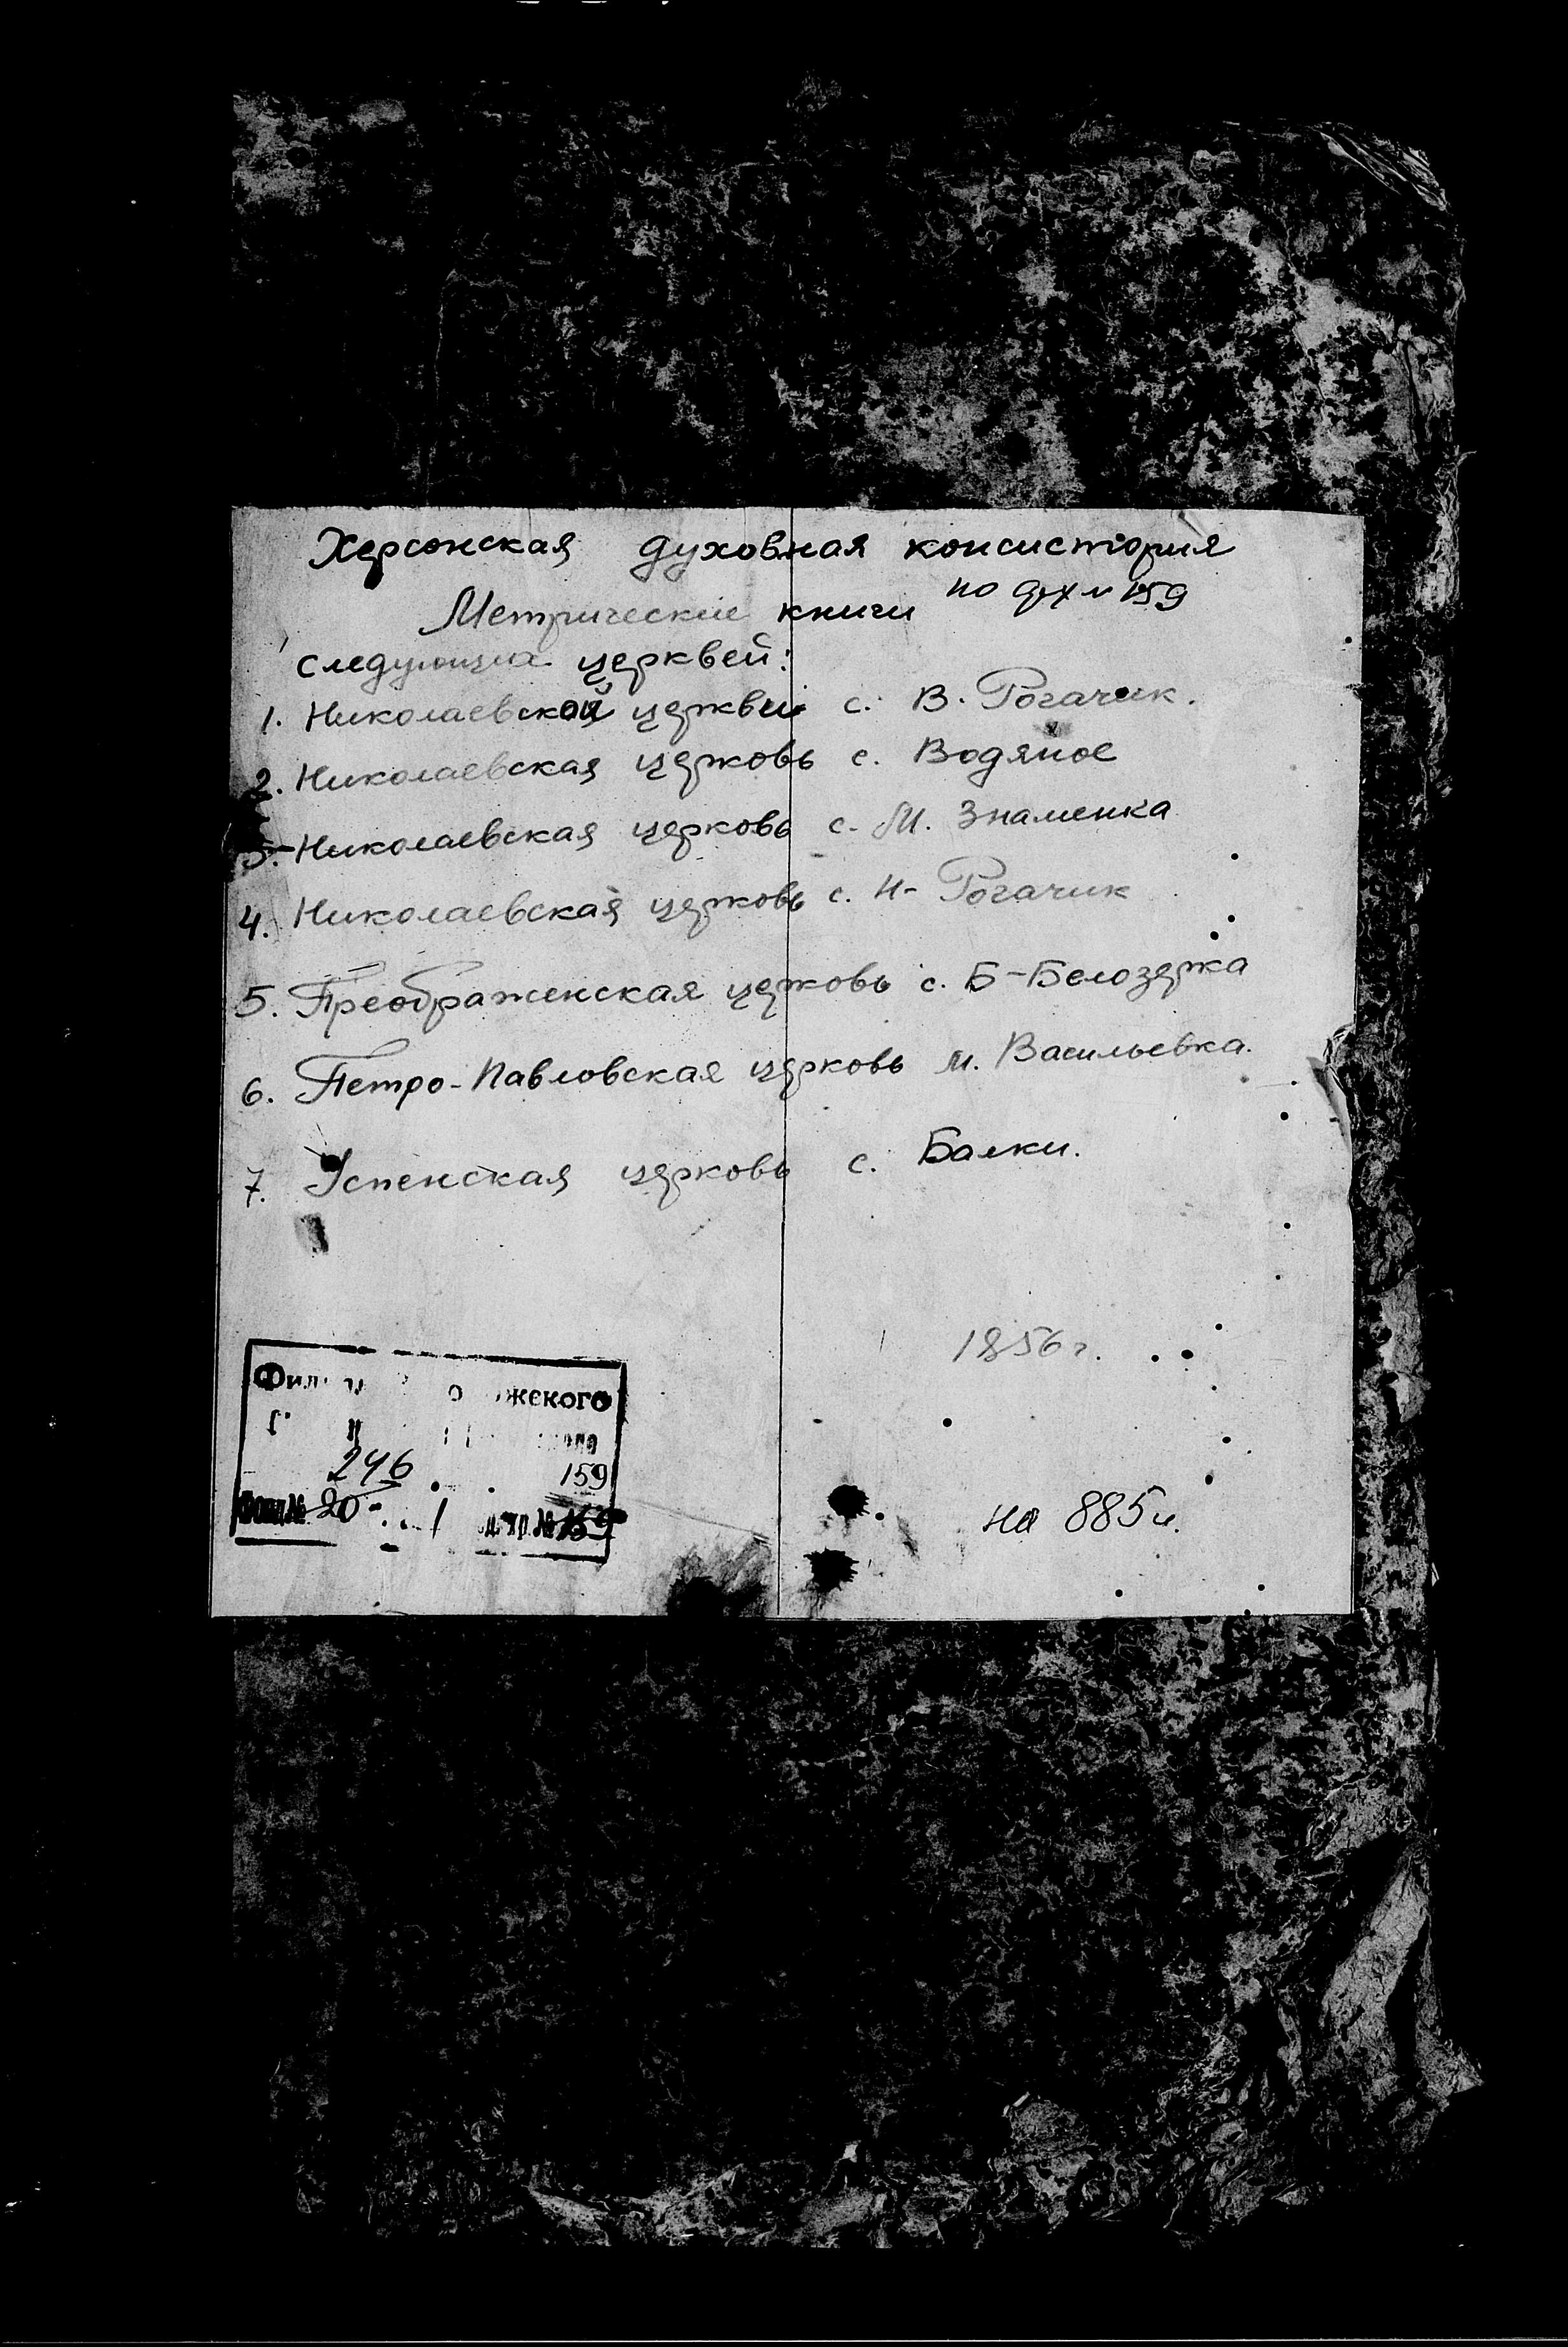 Херсонская духовная консистория
Метрические книги по арх № 159
следующих церквей:
1. Николаевской церквей с. В. Рогачик.
2. Николаевская церковь с. Водяное
3. Николаевская церковь с. М. Знаменка
4. Николаевская церковь с. Н- Рогачик
5. Преображенская церковь с. Б-Белозерка
6. Петро-Павловская церковь м. Васильевка.
7. Успенская церковь с. Балки.
1856 г.
жского
246 159
20 1 №
на 885 л.